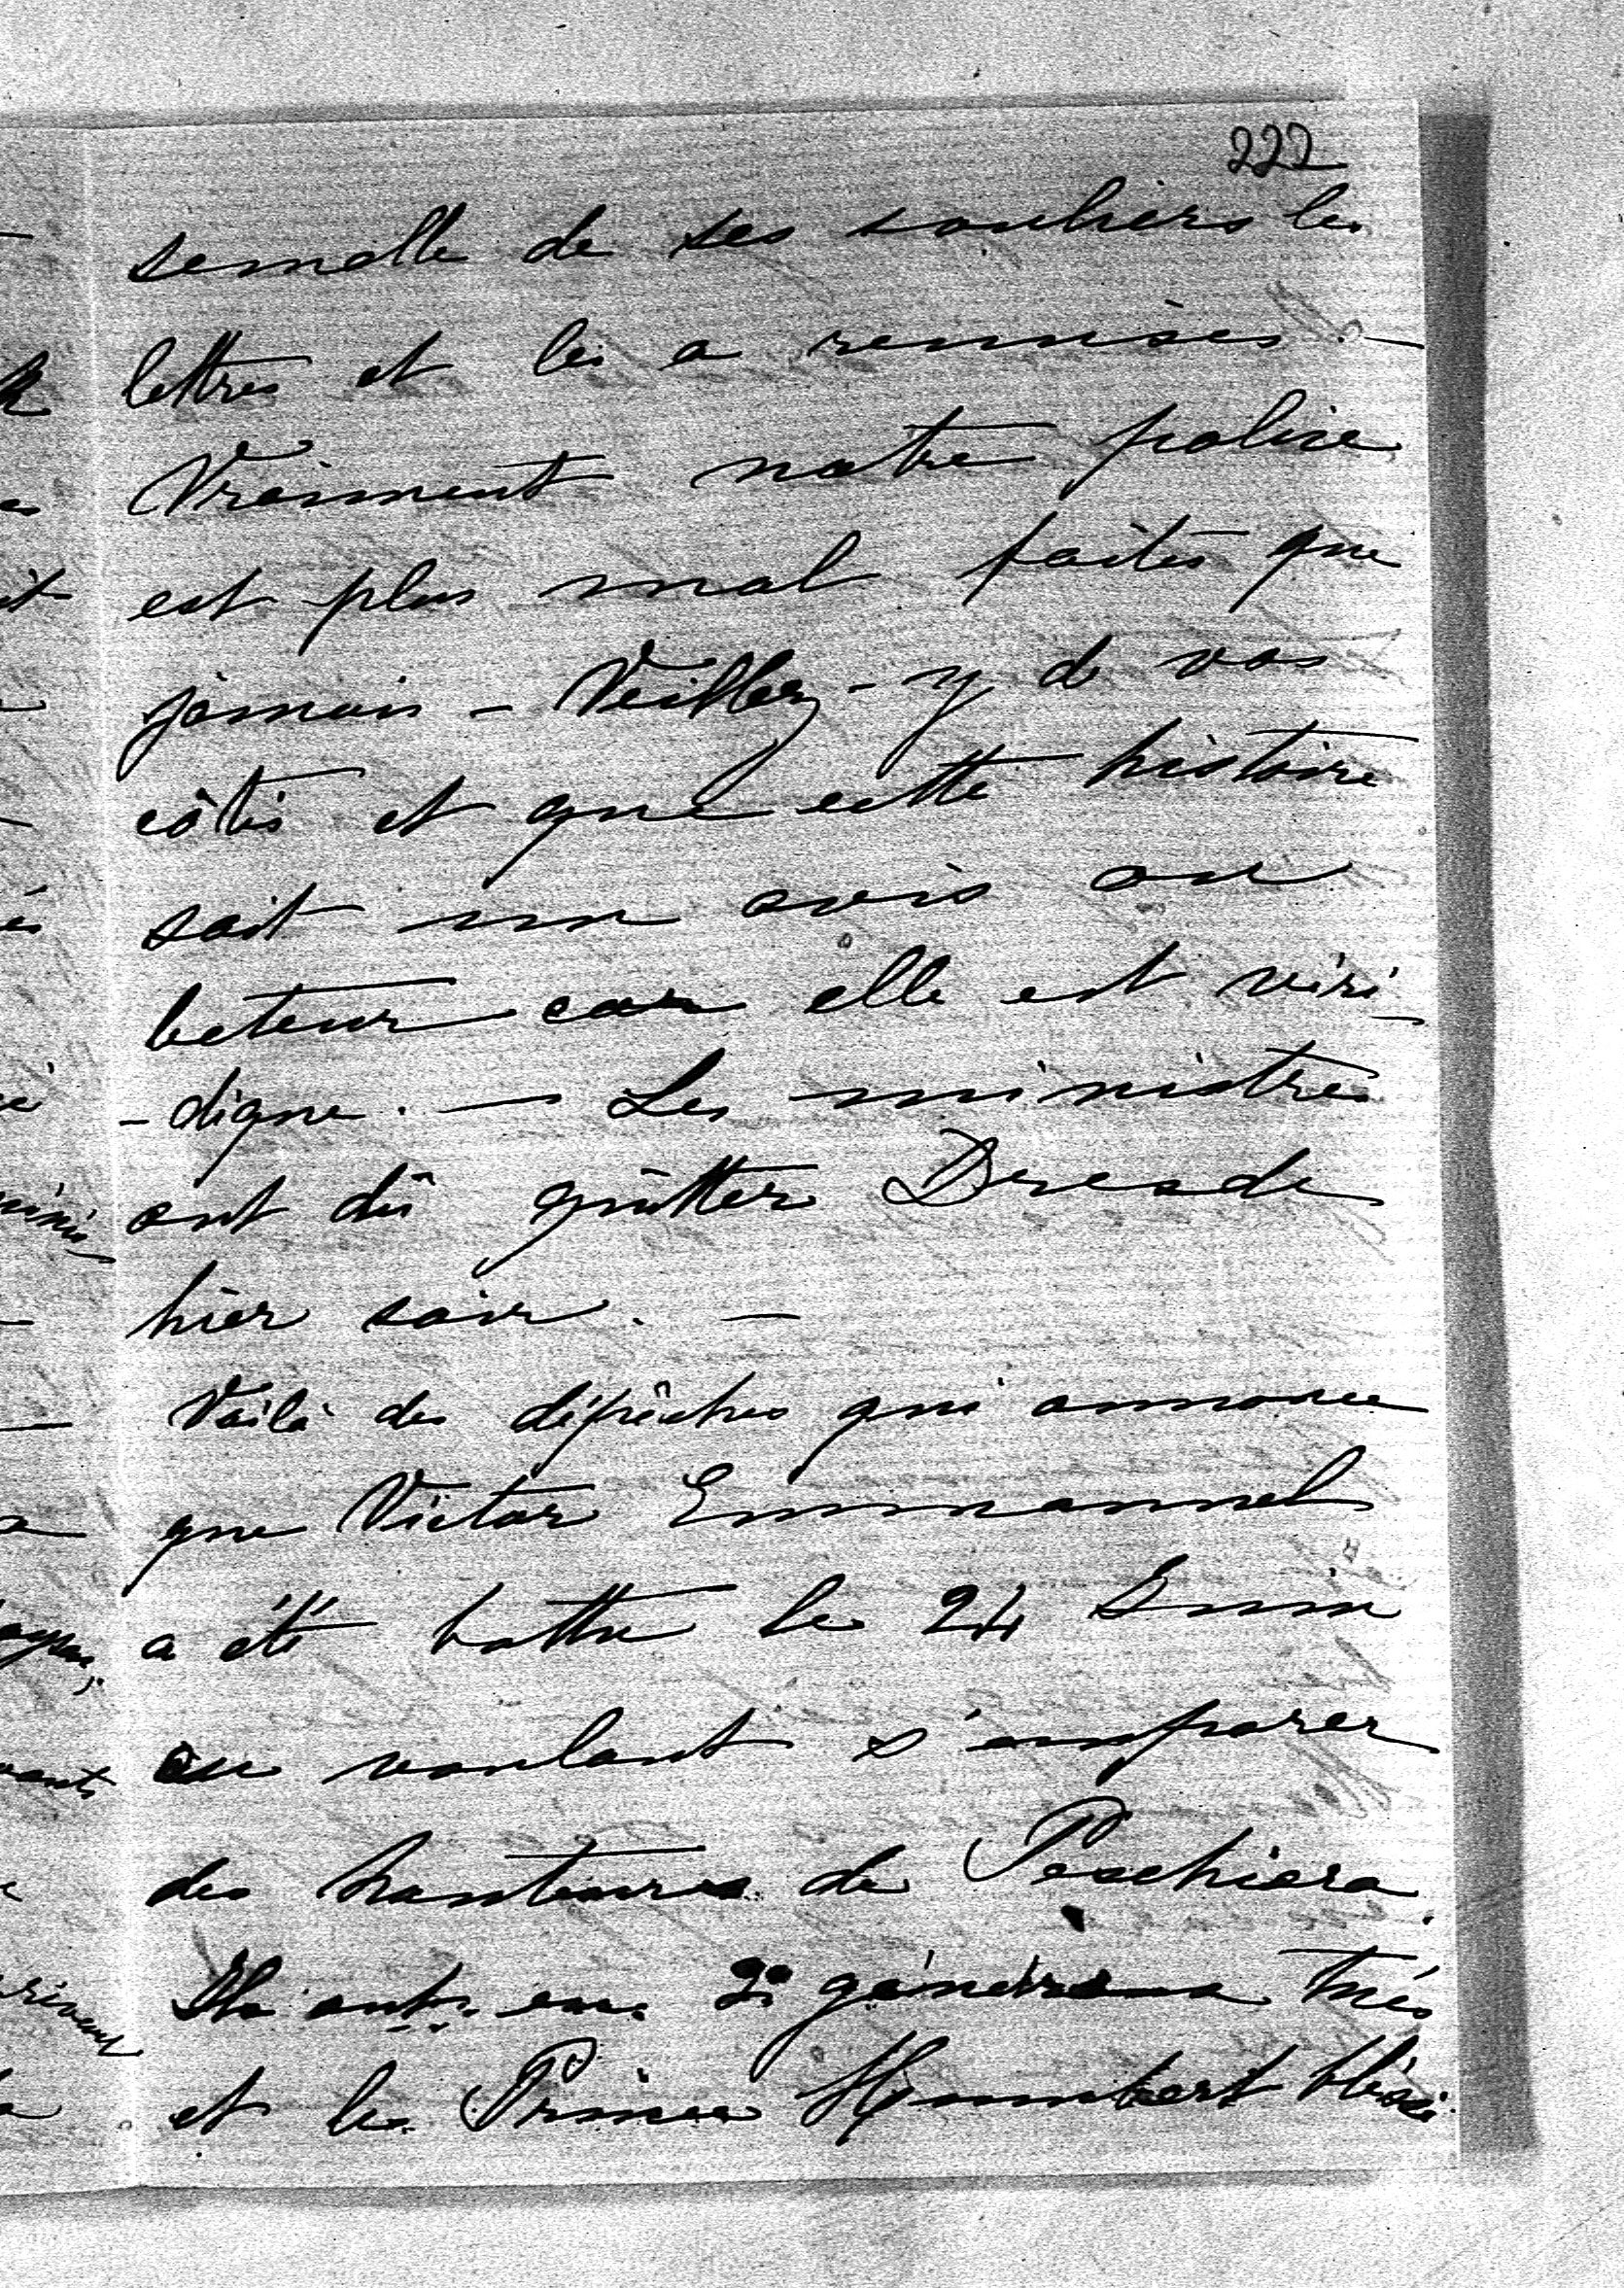 222
semelle de ses souliers les
lettres et les a remises. —
Vraiment notre police
est plus mal faite que
jamais – Veillez-y de vos
côtés et que cette histoire
soit un avis au
lecteur car elle est véri-
-digne. — Les ministres
ont dû quitter Dresde
hier soir. —
Voilà des dépêches qui annonce
que Victor Emmanuel
a été battu le 24 Juin
en voulant s'emparer
des hauteurs de Peschiera.
Ils ont eu 2 généraux tués
et le Prince Humbert blessé.